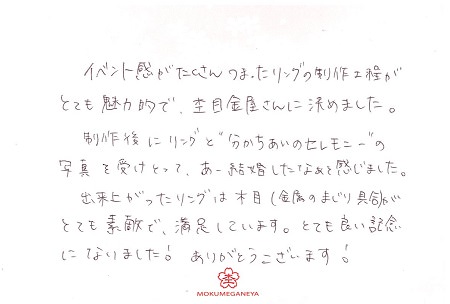 イベント感がたくさんつまったリングの制作工程が
とても魅力的で、杢目金屋さんに決めました。
制作後にリングと"分かちあいのセレモニー"の
写真を受けとって、あー結婚したなぁと感じました。
出来上がったリングは木目(金属のまじり具合)が
とても素敵で、満足しています。とても良い記念
になりました! ありがとうございます!
MOKUMEGANEYA